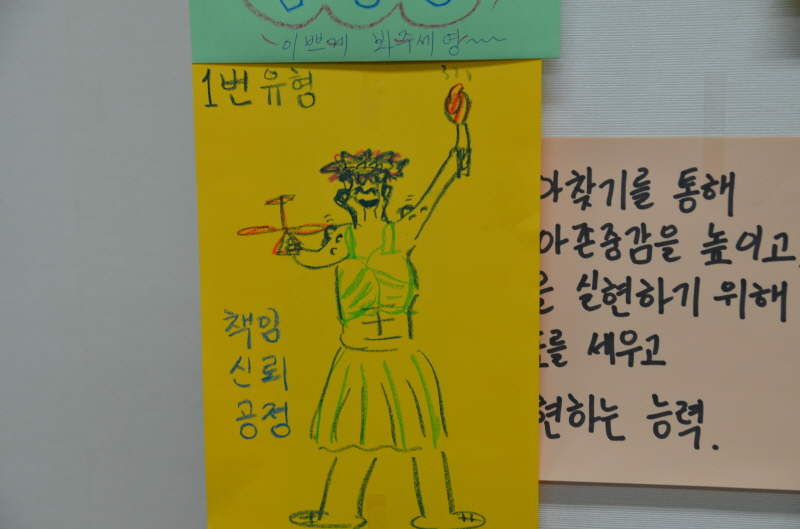 이쁘게 봐주세영~~~
1번유형
책임
신뢰
공정
아찾기를 통해
아존중감을 높이고,
을 실현하기 위해
를 세우고
현하는 능력.